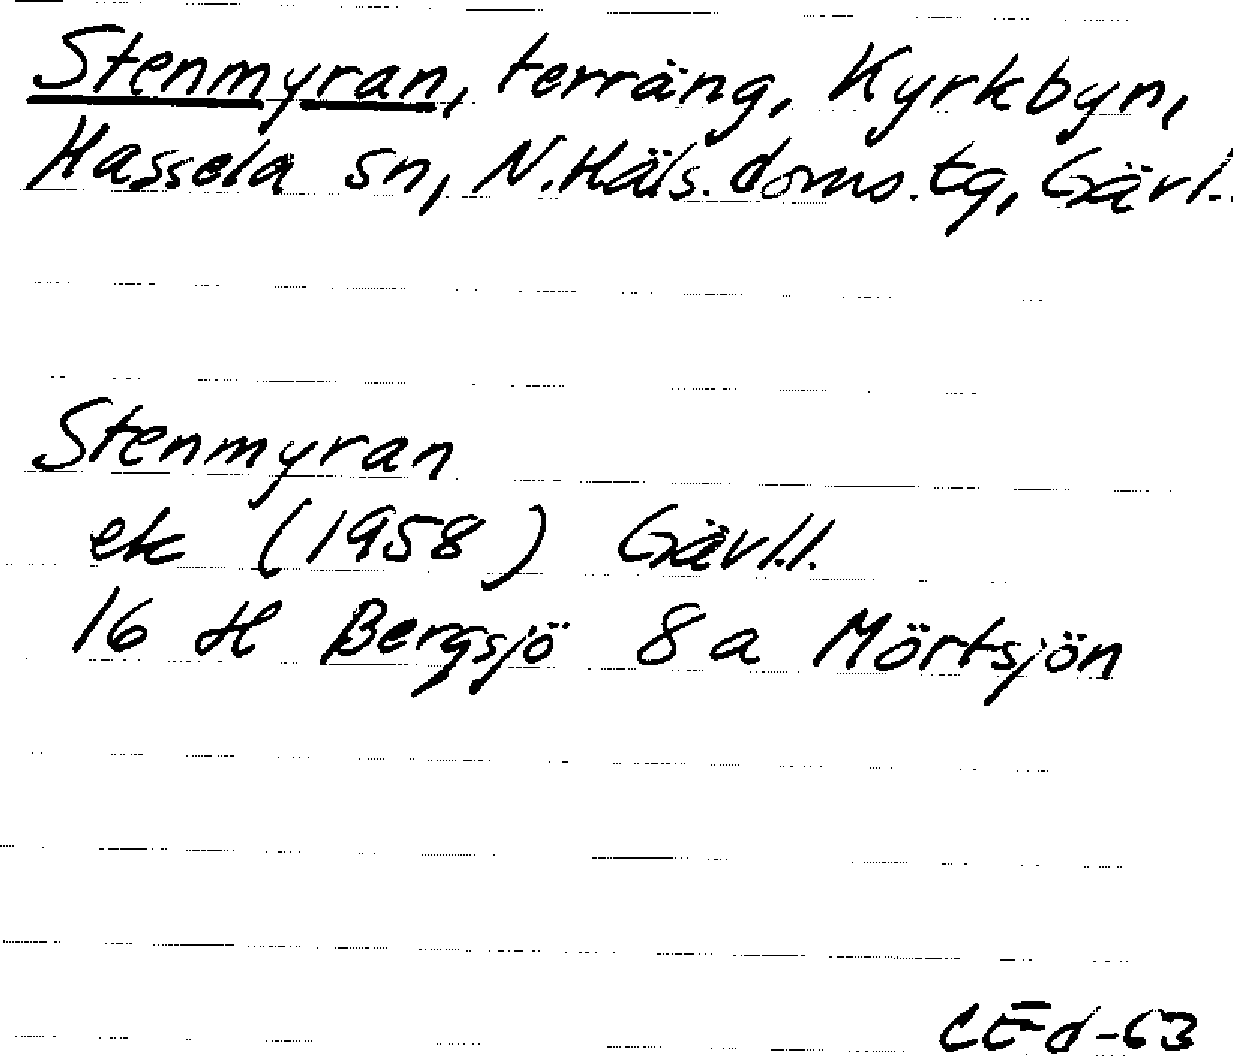 Stenmyran, terräng, Kyrkbyn,
Hassela sn, N.Häls.doms.tg, Gävl.
Stenmyran
ek (1958) Gävl.l.
16 H Bergsjö 8 a Mörtsjön
CEd-63